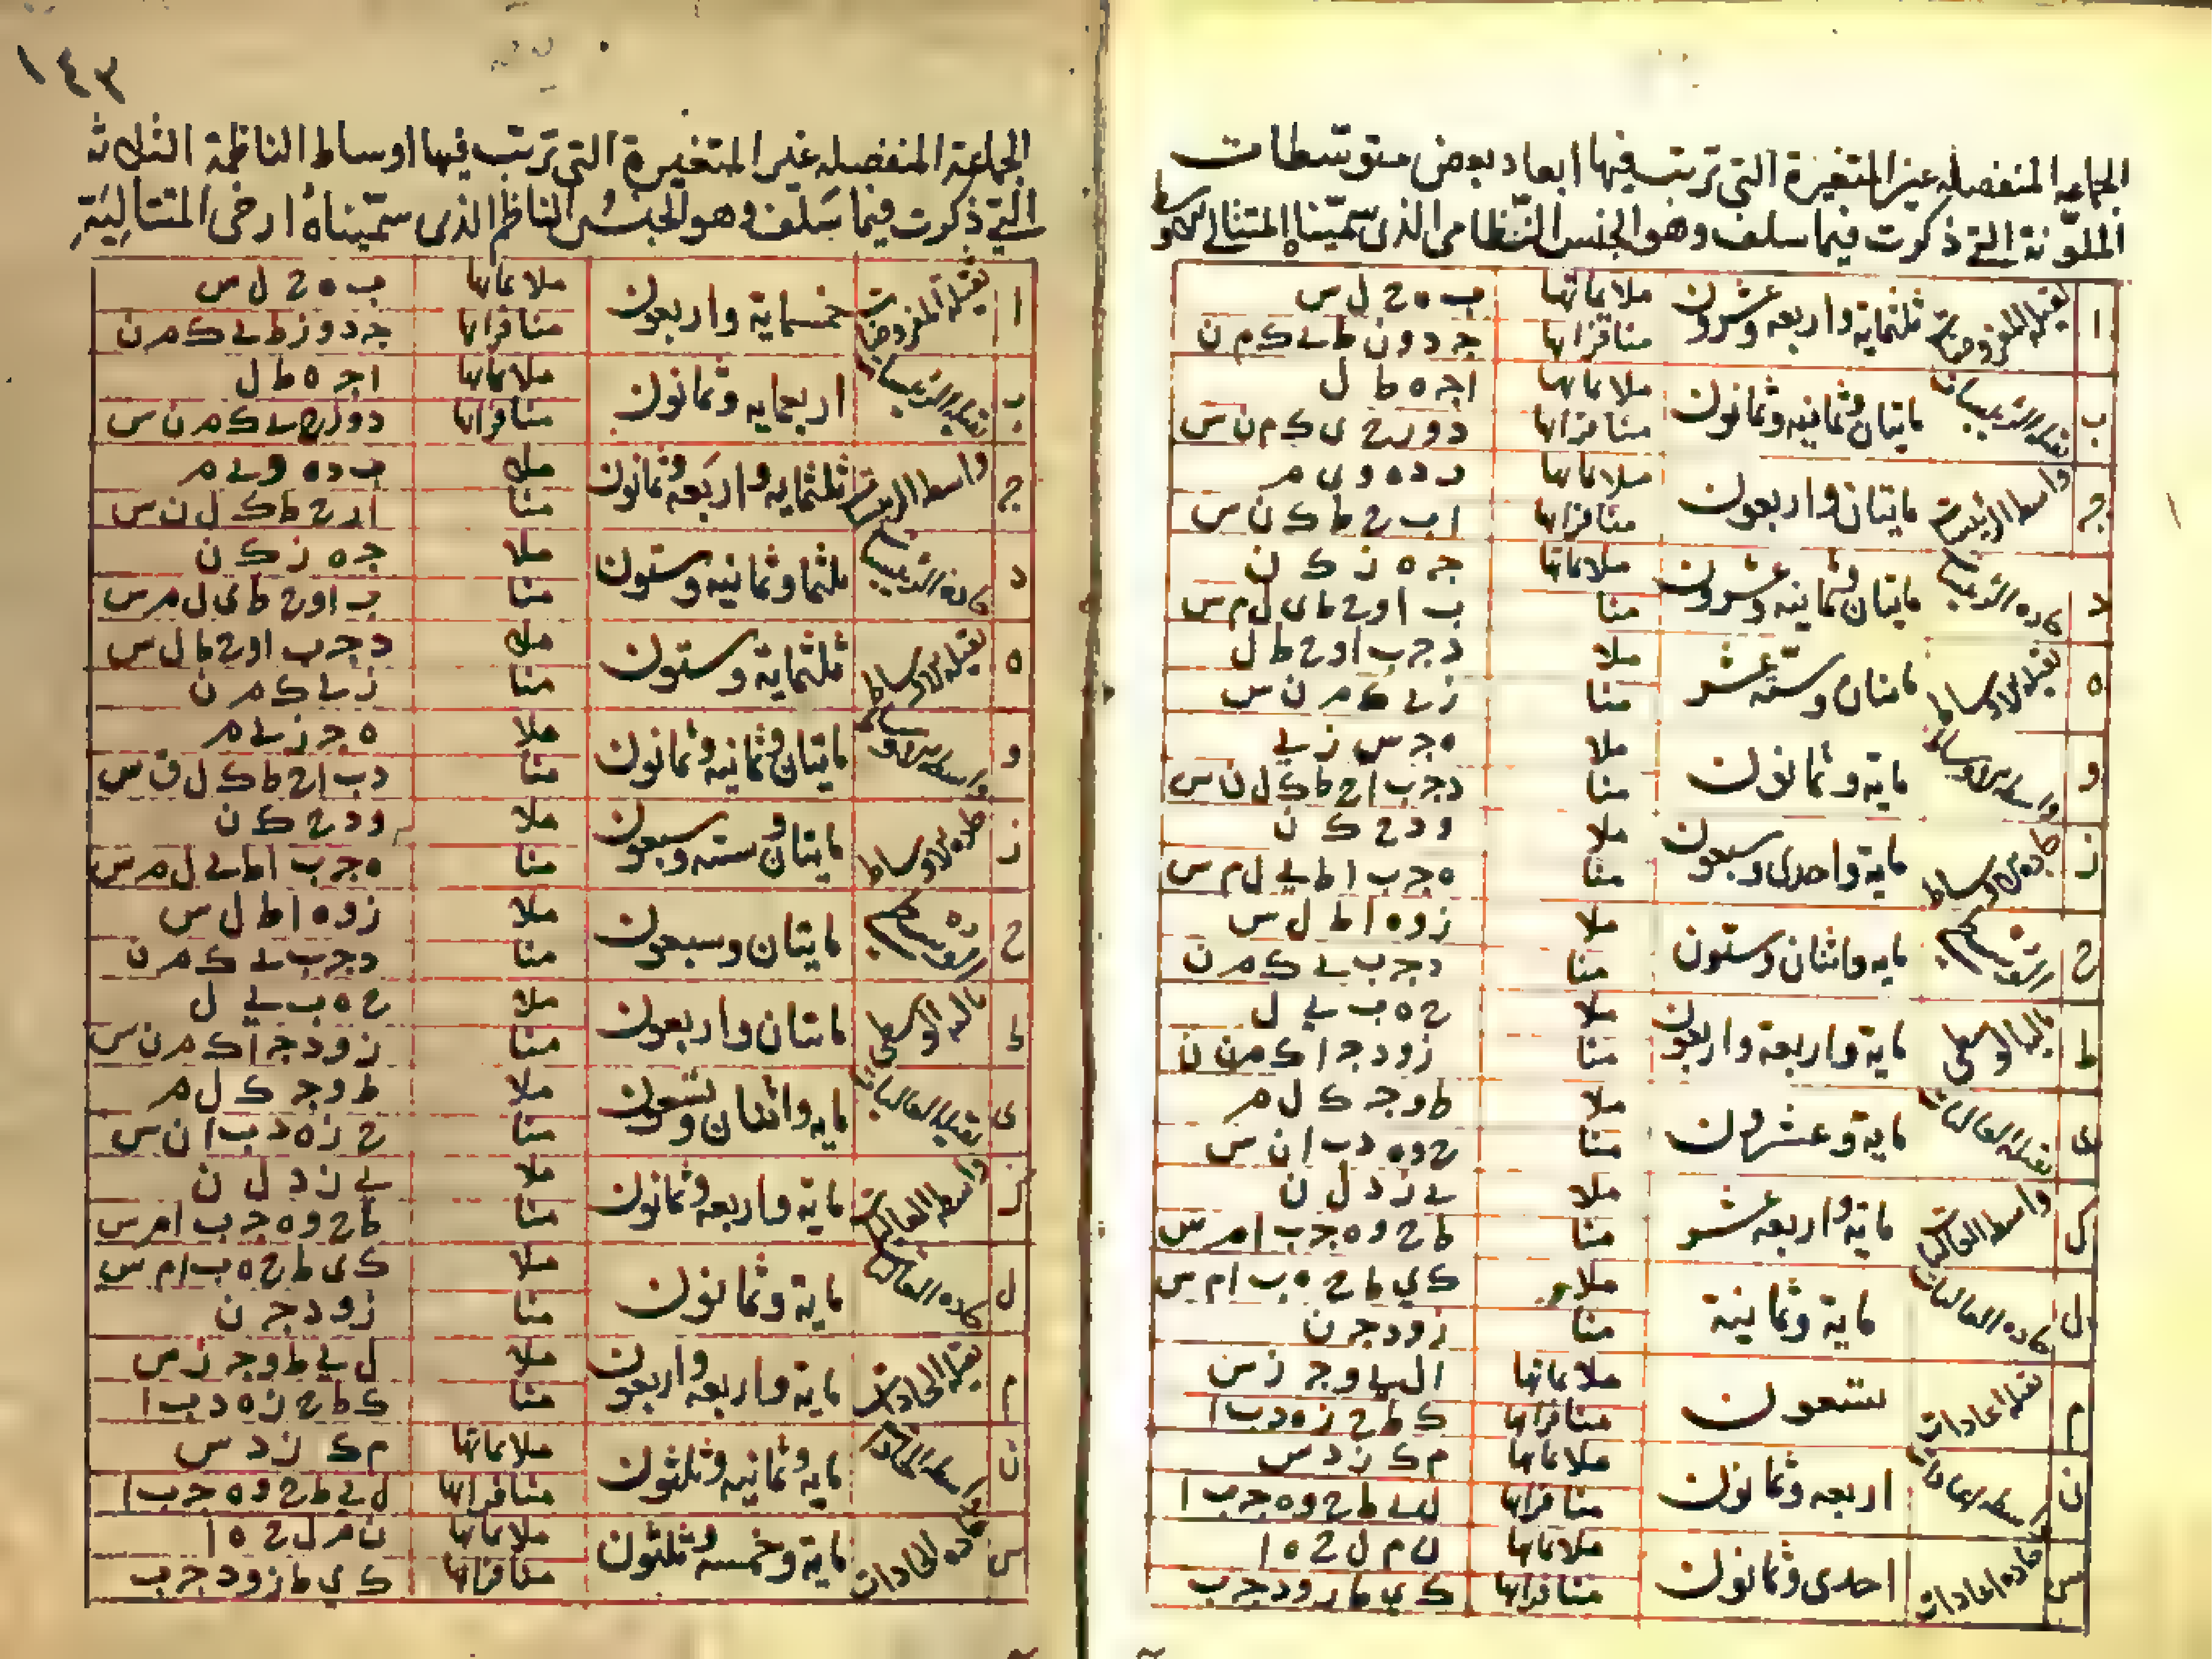 الجماعه المنفصله غير المتغيرة التى ترتب فيها ابعاد بعض متوسطات
الملونة التى ذكرت فيما سلف وهو الجنس النظامى الذى سميناه المتتالى
ا ثقيلة المفروضات ثلثماية واربعه وعشرون ملاىماتها ب ه ح ل س
منافراتها ج د و ز ط ى ك م ن
ب مايتان وثمانيه وثمانون ملاىماتها ا ج ه ط ل
منافراتها د و ز ح ى ك م ن س
ج مايتان واربعون ملاىماتها د ه و ى م
منافراتها ا ب ح ط ك ن س
د مايتان وثمانيه وعشرون ملاىماتها ج ه ز ك ن
منا ب ا و ح ط ى ل م س
ه ثقيلة الاوساط مايتان وستة عشر ملا د ج ب ا و ح ط ل
منا ز ى ك م ن س
و واسطة الاوساط ماية وثمانون ملا ه ج س ز ى
منا د ج ب ا ح ط ك ل ن س
ز حادة الاوساط ماية واحدى وسبعون ملا و د ح ك ن
منا ه ج ب ا ط ى ل م س
ح ماية واثنان وستون ملا ز و ه ا ط ل س
منا د ج ب ى ك م ن
ط ماية واربعة واربعون ملا ح ه ب ى ل
منا ز و د ج ا ك م ن ن
ى ثقيلة العاليات ماية وعشرون ملا ط و ج ك ل م
منا ح و ه د ب ا ن س
ك واسطة العاليات ماية واربعه عشر ملا ى ز د ل ن
منا ط ح و ه ج ب ا م س
ل حادة العاليات ماية وثمانية ملا ك ى ط ح ه ب ا م س
منا ز و د ج ن
م ثقيلة الحادات تسعون ملاىماتها
منافراتها ك ط ح ز ه د ب ا
ن اربعه وثمانون ملاىماتها م ك ز د س
منافراتها ل ى ط ح و ه ج ب ا
س حادة الحادات احدى وثمانون ملاىماتها ن م ل ح ه ا
منافراتها ك ى ط ز و د ج ب
١٤٣
الجماعة المنفصله غير المتغيرة التى ترتب فيها اوساط الناظمة الثلاثة
التى ذكرت فيما سلف وهو الجنس الناظم الذى سميناه ارخى المتتالية
ا ثقيلة المفروضات خمسماية واربعون ملاىماتها ب ه ح ل س
منافراتها ج د و ز ط ى ك م ن
ب اربعمايه وثمانون ملاىماتها ا ج ه ط ل
منافراتها د و ز ح ى ك م ن س
ج ثلثمايه واربعه وثمانون ملا ب د ه و ى م
منا ا ز ح ط ك ل ن س
د ثلثما وثمانيه وستون ملا ج ه ز ك ن
منا ب ا و ح ط ى ل م س
ه ثقيلة الاوساط ثلثماية وستون ملا د ج ب ا و ح ط ل س
منا ز ى ك م ن
و مايتان وثمانيه وثمانون ملا ه ج ز ى م
منا د ب ا ح ط ك ل ن س
ز حادة الاوساط مايتان وسته وسبعون ملا و د ح ك ن
منا ه ج ب ا ط ى ل م س
ح مايتان وسبعون ملا ز و ه ا ط ل س
منا د ج ب ى ك م ن
ط مايتان واربعون ملا ح ه ب ى ل
منا ز و د ج ا ك م ن س
ى ثقيلة العاليات مايه واثنان وتسعون ملا ط و ج ك ل م
منا ح ز ه د ب ا ن س
ك واسطة العاليات ماية واربعه وثمانون ملا ى ز د ل ن
منا ط ح و ه ج ب ا م س
ل حادة العاليات ماية وثمانون ملا ك ى ط ح ه ب ا م س
منا ز و د ج ن
م ثقيلة الحادات ماية واربعه واربعون ملا ل ى ط و ج ز س
منا ك ط ح ز ه د ب ا
ن مايه وثمانيه وثلثون ملاىماتها م ك ز د س
منافراتها ل ى ط ح و ه ج ب ا
س حادة الحادات ماية وخمسه وثلثون ملاىماتها ن م ل ح ه ا
منافراتها ك ى ط ز و د ج ب